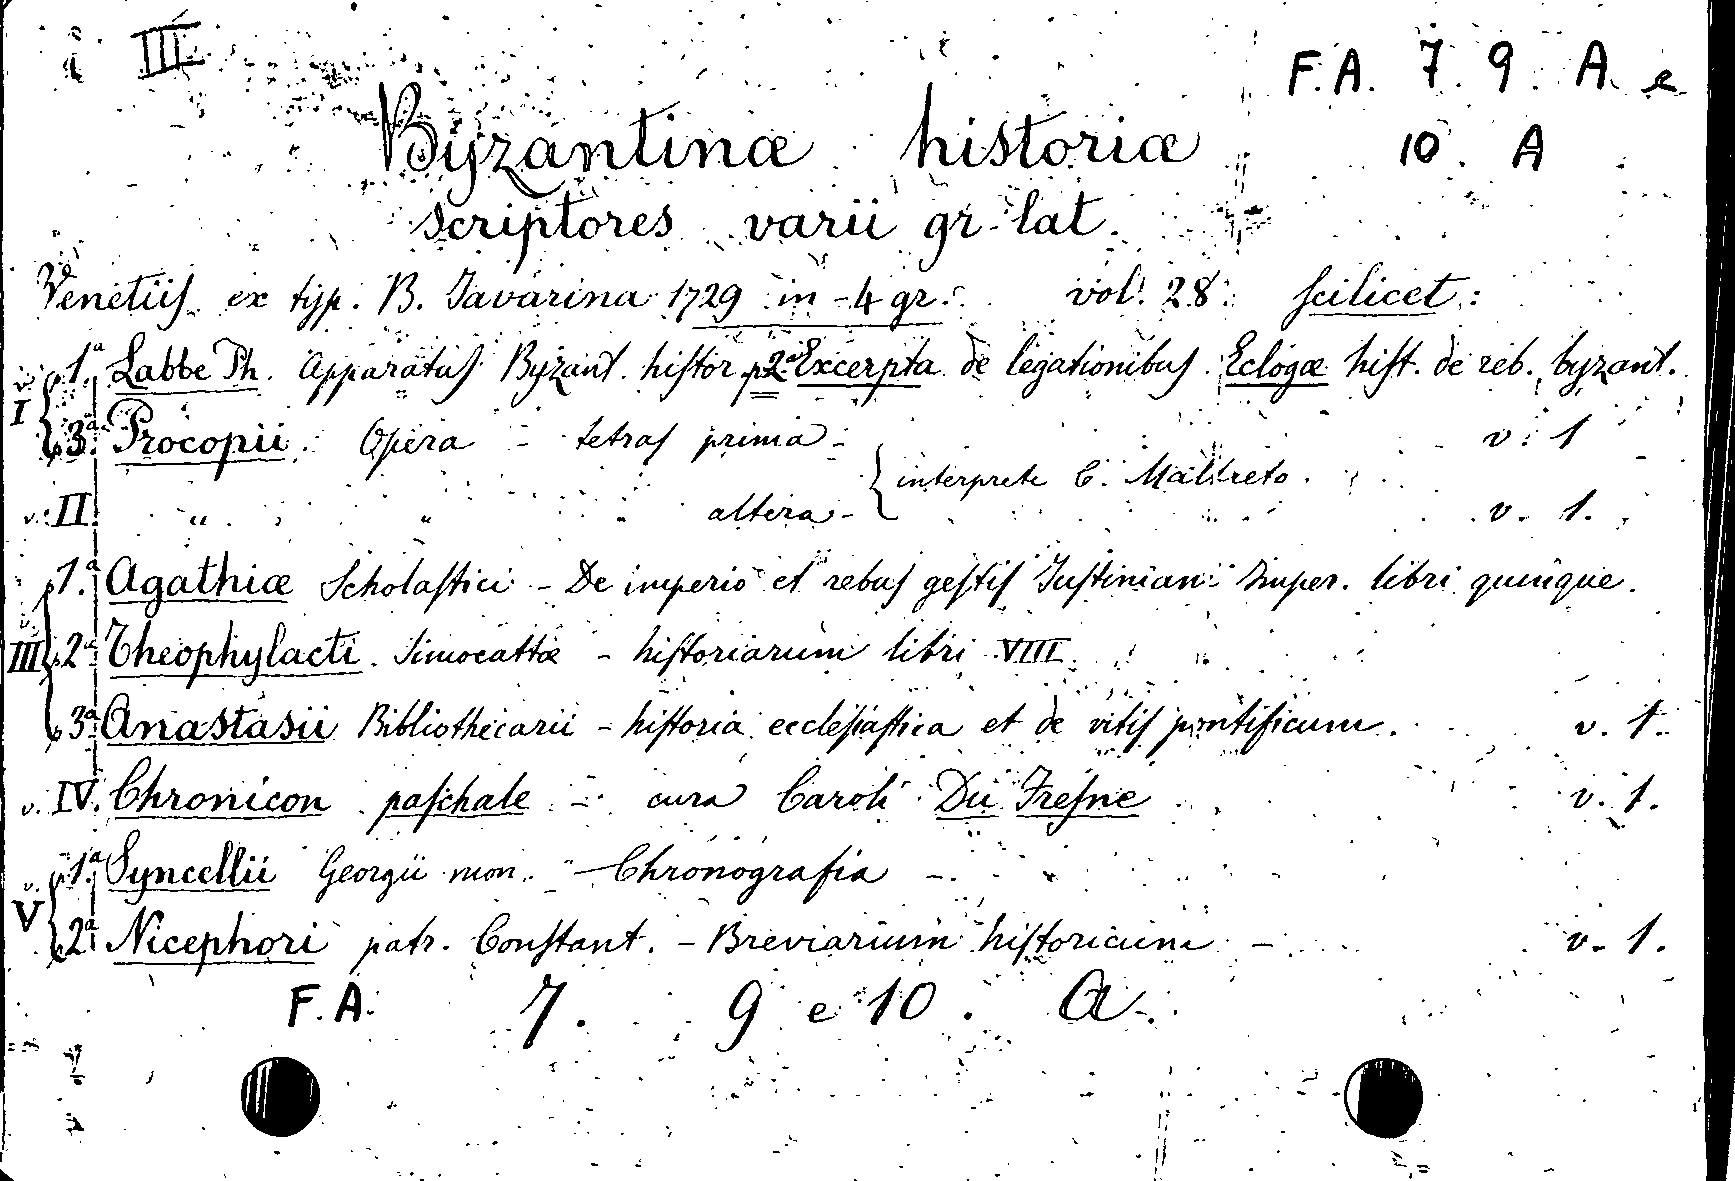 III
F.A. 7. 9. A. e
10. A
Byzantinæ historiæ
scriptores varii gr-lat.
Venetiis ex typ. B. Javarina 1729 in-4 gr. vol. 28. scilicet:
1.ª Labbe Ph. Apparatus Byzant. histor p 2ª Excerpta de legationibus. Eclogæ hist. de reb. byzant.
v. I 3.ª Procopii. Opera - tetras prima - v. 1
interprete C. Maltreto.
v. II. " " " altera - v. 1.
1.ª Agathiæ Scholastici - De imperio et rebus gestis Justiniani Imper. libri quinque.
v. III 2ª Theophylacti. Simocattæ - historiarum libri VIII.
3ª Anastasii Bibliothecarii - historia ecclesiastica et de vitis pontificum. v. 1.
v. IV. Chronicon paschale - cura Caroli Du Fresne v. 1.
1.ª Syncellii Georgii mon. - Chronografia -
v. V 2ª Nicephori patr. Constant. - Breviarium historicum - v. 1.
F.A. 7. 9 e 10. A.